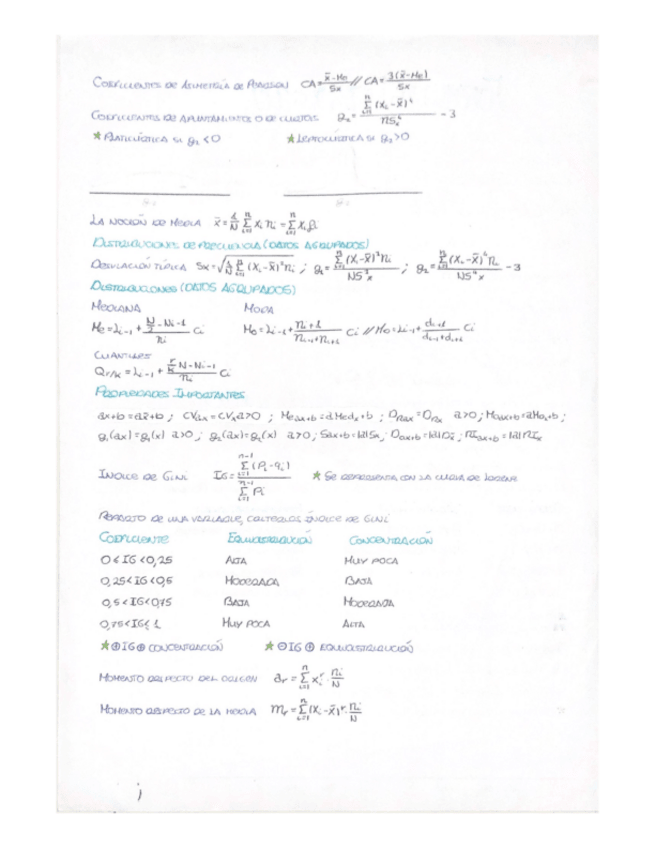 COEFICIENTES DE ASIMETRÍA DE PEARSON CA = x̄-Mo / Sx // CA = 3(x̄-Me) / Sx
COEFICIENTES DE APUNTAMIENTO O DE CURTOSIS g₂ = Σ(i=1,n) (xᵢ-x̄)⁴ / nSₓ⁴ - 3
★ PLATICÚRTICA SI g₂ < 0 ★ LEPTOCÚRTICA SI g₂ > 0
LA NOCIÓN DE MEDIA x̄ = 1/N Σ(i=1,n) xᵢ nᵢ = Σ(i=1,n) xᵢ fᵢ
DISTRIBUCIONES DE FRECUENCIA (DATOS AGRUPADOS)
DESVIACIÓN TÍPICA Sx = √(1/N Σ(i=1,n) (xᵢ-x̄)²nᵢ) ; g₁ = Σ(i=1,n) (xᵢ-x̄)³nᵢ / NS³x ; g₂ = Σ(i=1,n) (xᵢ-x̄)⁴nᵢ / NS⁴x - 3
DISTRIBUCIONES (DATOS AGRUPADOS)
MEDIANA MODA
Me = Lᵢ₋₁ + (N/2 - Nᵢ₋₁)/nᵢ Cᵢ Mo = Lᵢ₋₁ + nᵢ₊₁/(nᵢ₋₁+nᵢ₊₁) Cᵢ // Mo = Lᵢ₋₁ + dᵢ₊₁/(dᵢ₋₁+dᵢ₊₁) Cᵢ
CUANTILES
Qr/k = Lᵢ₋₁ + (r/k N - Nᵢ₋₁)/nᵢ Cᵢ
PROPIEDADES IMPORTANTES
ax+b = ax̄+b ; CVax = CVx a>0 ; Meax+b = aMedx+b ; a>0 ; Moax+b = aMox+b ;
g₁(ax) = g₁(x) a>0 ; g₂(ax) = g₂(x) a>0 ; Sax+b = |a|Sx ;
ÍNDICE DE GINI IG = Σ(i=1,n-1) (Pᵢ-qᵢ) / Σ(i=1,n-1) Pᵢ ★ SE REPRESENTA CON LA CURVA DE LORENZ
REPARTO DE UNA VARIABLE, ÍNDICE DE GINI
COEFICIENTE EQUIDISTRIBUCIÓN CONCENTRACIÓN
0 < IG < 0,25 ALTA MUY POCA
0,25 < IG < 0,5 MODERADA BAJA
0,5 < IG < 0,75 BAJA MODERADA
0,75 < IG < 1 MUY POCA ALTA
★ ⊕IG⊕ CONCENTRACIÓN ★ ⊖IG⊕ EQUIDISTRIBUCIÓN
MOMENTO RESPECTO DEL ORIGEN ar = Σ(i=1,n) xᵢʳ · nᵢ/N
MOMENTO RESPECTO DE LA MEDIA mr = Σ(i=1,n) (xᵢ-x̄)ʳ · nᵢ/N